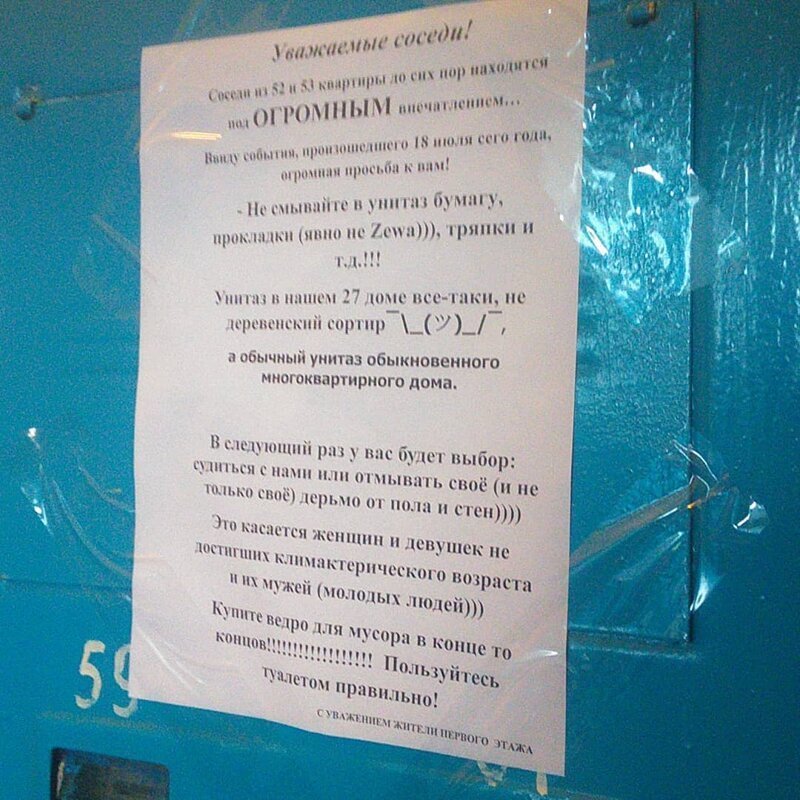 Уважаемые соседи!
Соседи из 52 и 53 квартиры до сих пор находятся
под ОГРОМНЫМ впечатлением...
Ввиду события, произошедшего 18 июля сего года,
огромная просьба к вам!
- Не смывайте в унитаз бумагу,
прокладки (явно не Zewa))), тряпки и
т.д.!!!
Унитаз в нашем 27 доме все-таки, не
деревенский сортир¯\_(ツ)_/¯,
а обычный унитаз обыкновенного
многоквартирного дома.
В следующий раз у вас будет выбор:
судиться с нами или отмывать своё (и не
только своё) дерьмо от пола и стен))))
Это касается женщин и девушек не
достигших климактерического возраста
и их мужей (молодых людей)))
Купите ведро для мусора в конце то
концов!!!!!!!!!!!!!!!!!! Пользуйтесь
туалетом правильно!
С УВАЖЕНИЕМ ЖИТЕЛИ ПЕРВОГО ЭТАЖА
59